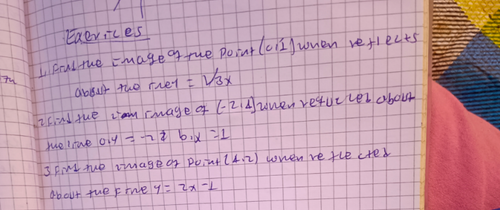 Exervices
1. find the image of the point (0,1) when reflects
about the line y = √3x
2. find the image of (-2,1) when reflected about
the line a, y = -2 & b, x = 1
3. find the image of point (1,2) when reflected
about the line y = 2x - 1